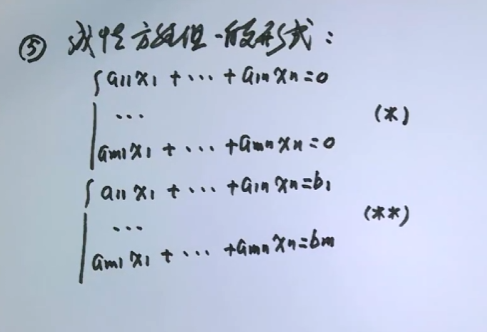 ⑤ 线性方程组一般形式：
{ a11x1 + ··· + a1nxn=0
···
am1x1 + ··· + amnxn=0
(*)
{ a11x1 + ··· + a1nxn=b1
···
am1x1 + ··· + amnxn=bm
(**)